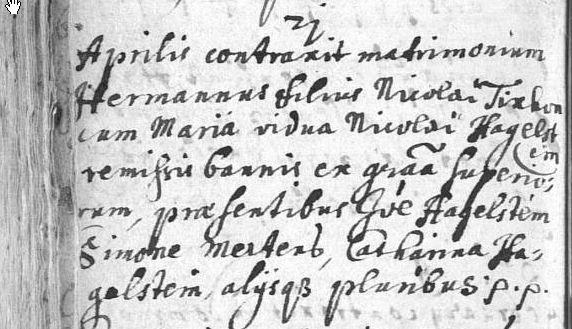 21
Aprilis contraxit matrimonium
Hermannus filius Nicolai
cum Maria vidua Nicolai Hagelst
ein
remissis bannis ex gratia superio-
rum, præsentibus Joe Hagelstein
Simone Mertens, Catharina Ha-
gelstein, alijsq3 pluribus p.p.